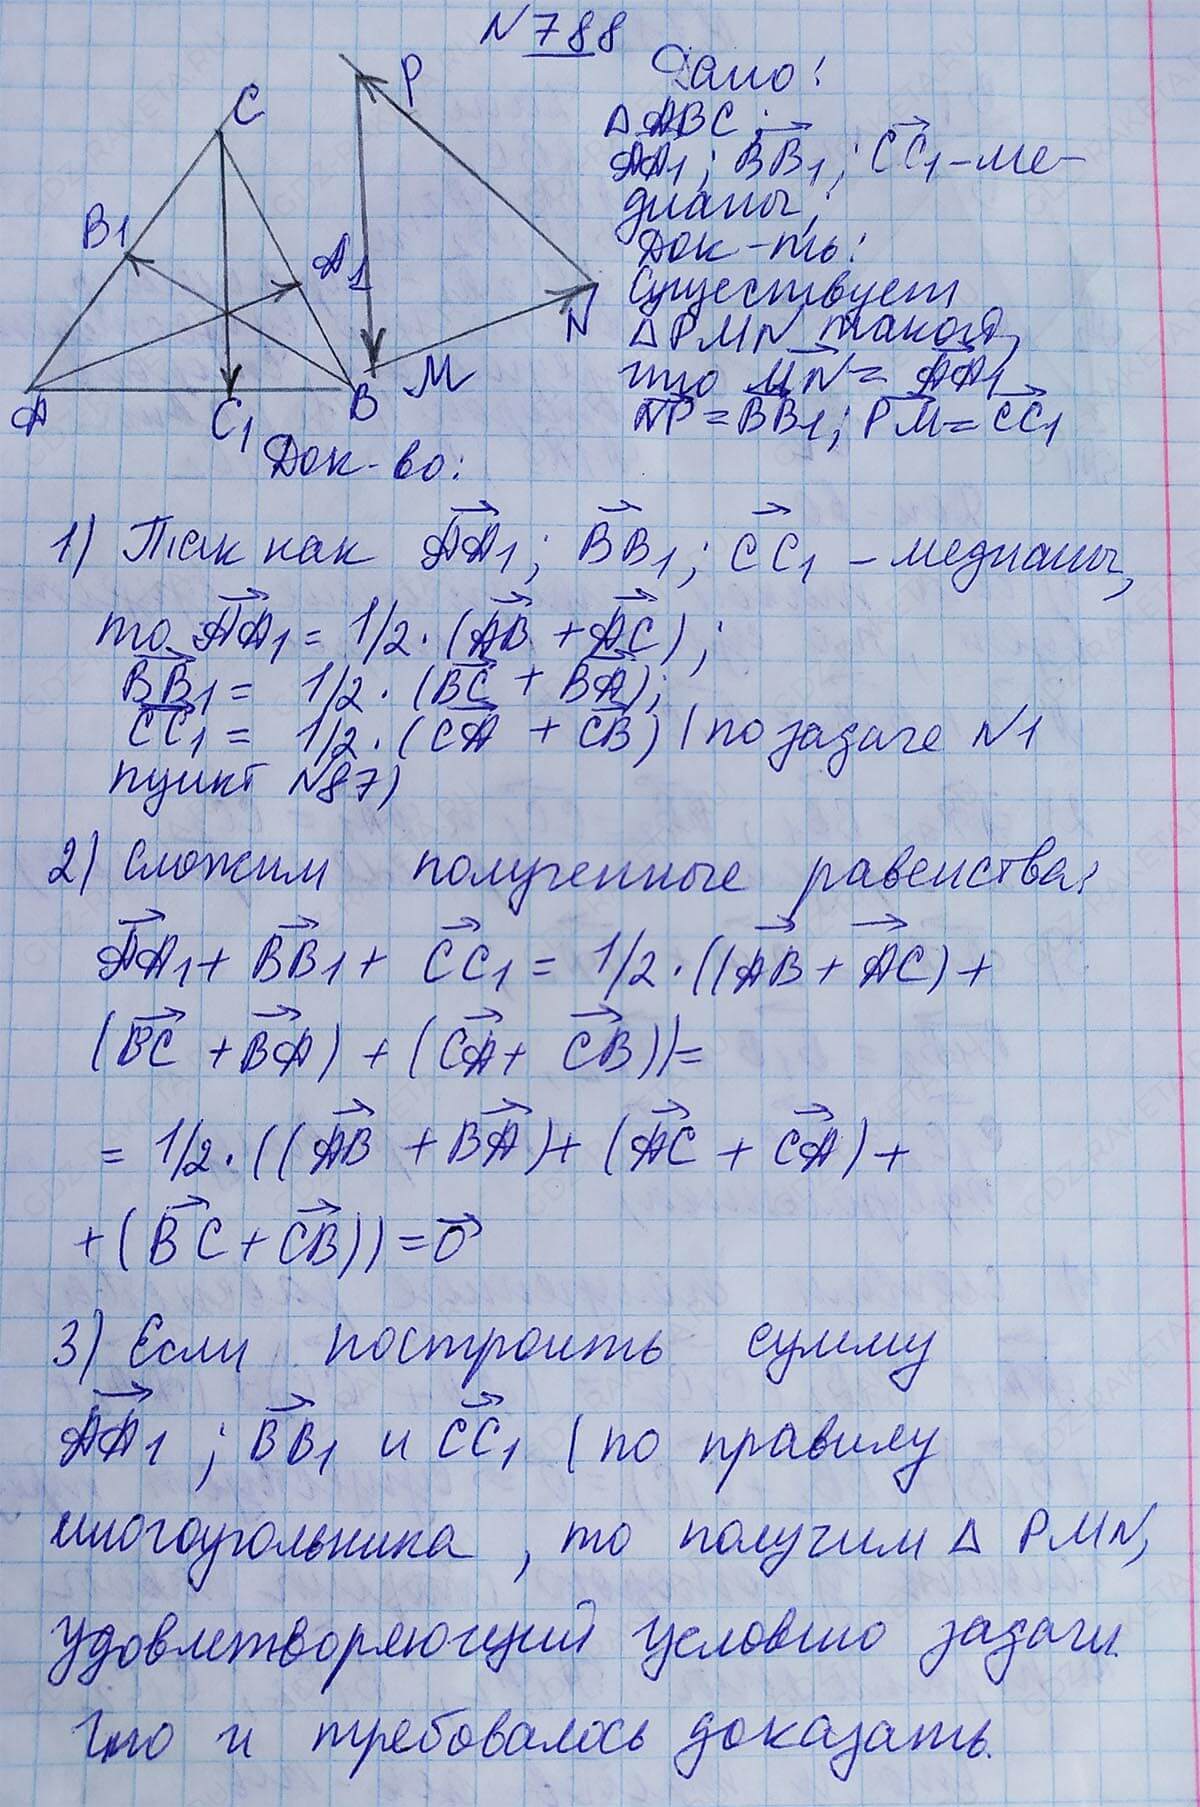 N 788
C
P
B1
A1
N
M
A
C1
B
Дано:
△ ABC;
AA1; BB1; CC1 – ме-
дианы;
Док-ть:
Существует
△ PMN такой,
что MN = AA1
NP = BB1; PM = CC1
Док-во:
1) Так как AA1; BB1; CC1 – медианы,
то AA1 = 1/2 · (AB + AC);
BB1 = 1/2 · (BC + BA);
CC1 = 1/2 · (CA + CB) (по задаче N1
пункт N87)
2) Сложим полученные равенства:
AA1 + BB1 + CC1 = 1/2 · ((AB + AC) +
(BC + BA) + (CA + CB)) =
= 1/2 · ((AB + BA) + (AC + CA) +
+ (BC + CB)) = 0
3) Если построить сумму
AA1; BB1 и CC1 (по правилу
многоугольника, то получим △ PMN,
удовлетворяющий условию задачи.
Что и требовалось доказать.